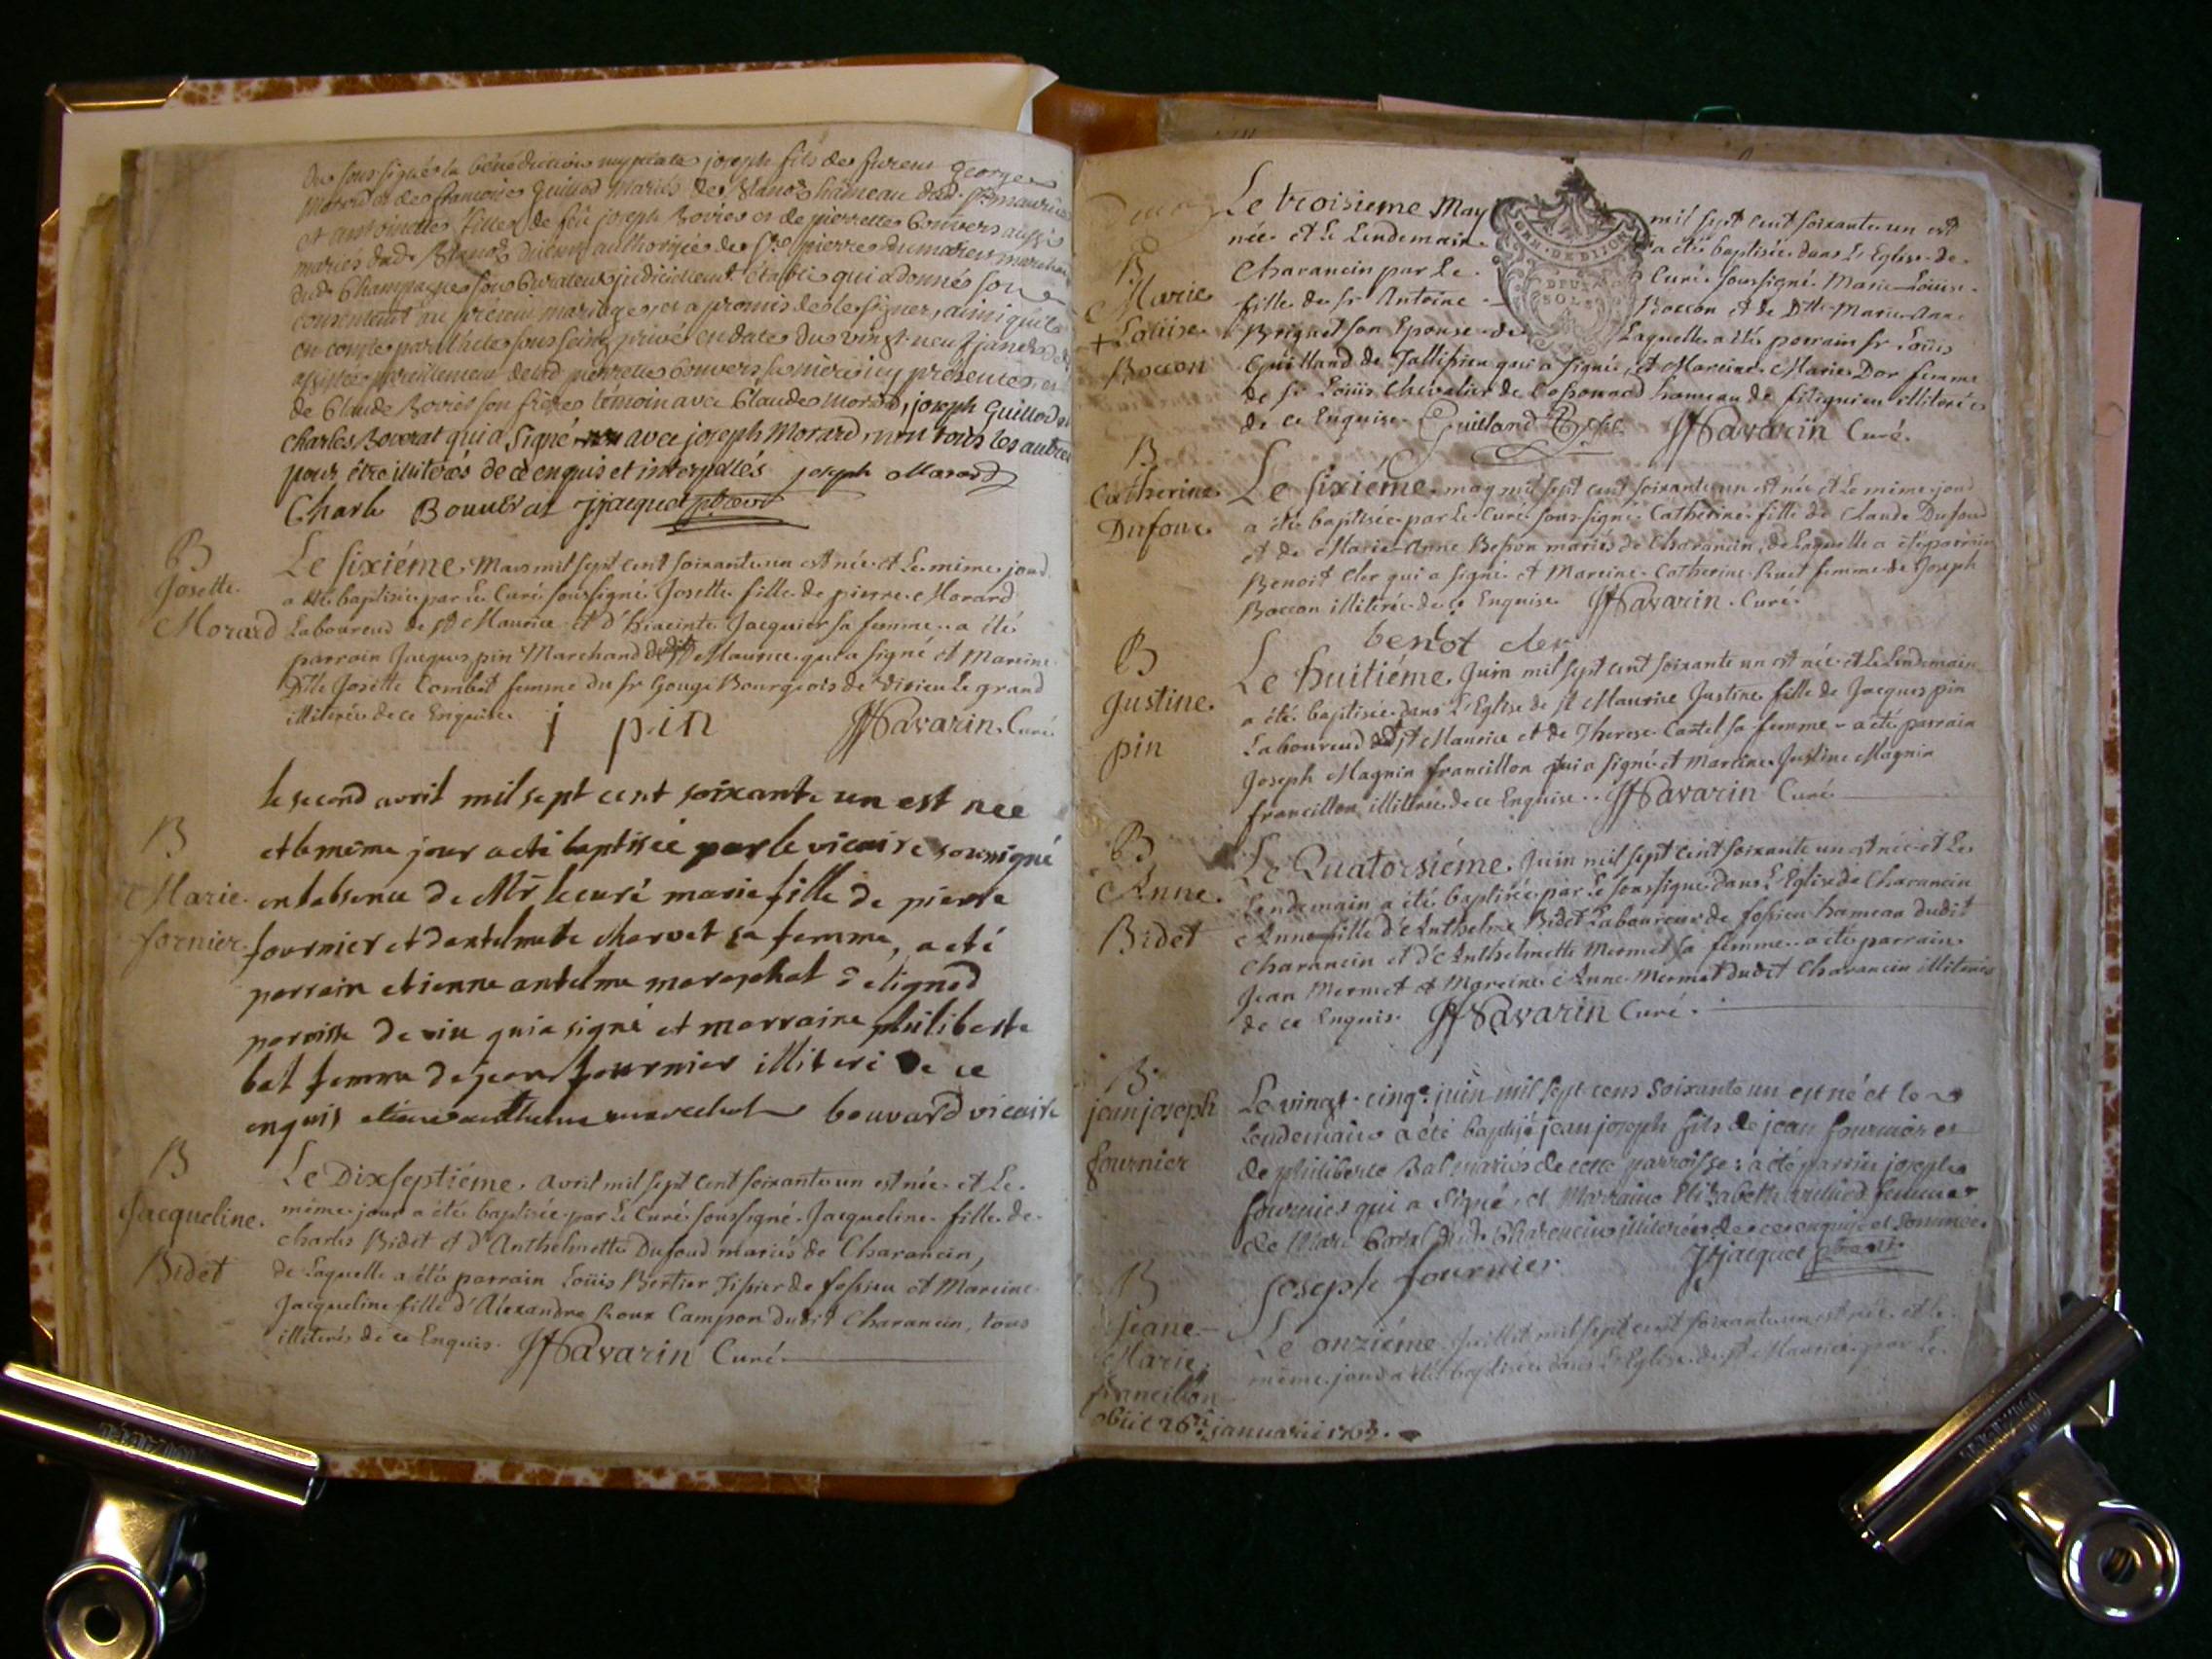 du soussigné la bénédiction nuptiale joseph fils de furent George
Morard et de francoise Guillod mariés de hameau dud. St maurice
et antoinette fille de feu joseph Bovier et de pierrette bonvers aussi
mariés dud. authorisée de sr pierre dumarest marchand
dud. Champagne son Curateur judiciellement établi qui a donné son
consentement au présent mariage, et a promis de le signer, ainsi qu'il
en conste par l'acte sous seing privé en date du vingt neuf janvier
assistée pareillement de lad pierrette bonvers sa mère icy présente, et
de Claude Bovier son frère témoin avec Claude Morard, joseph Guillod et
charles Boverat qui a signé avec joseph Morard, non tous les autres
pour être illiterés de ce enquis et interpellés joseph Morard
Charle Bouverat jjacquet
B
Josette
Morard
Le sixiéme Mars mil sept cent soixante un est née et Le même jour
a été baptisée par Le Curé soussigné Josette fille de pierre Morard
Laboureur de St Maurice et d'hiacinte Jacquier sa femme a été
parrain Jacques pin Marchand dudit St Maurice qui a signé et Mareine
Dlle Josette Combet femme du Sr Gouge Bourgeois de Virieu Le grand
illiterée de ce Enquise. j pin JfSavarin Curé
B
Marie
fornier
le second avril mil sept cent soixante un est née
et le même jour a eté baptisée par le vicaire soussigné
en labsence de Mr le curé marie fille de pierre
fournier et dantelmette charvet sa femme, a eté
parrain etienne antelme marechat
paroisse de viu qui a signé et marraine philiberte
bal femme de jean fournier illiteri de ce
enquis etienne anthelme marechat bouvard vicaire
B
Jacqueline
Bidet
Le Dixseptiéme avril mil sept cent soixante un est née et Le
même jour a été baptisée par Le Curé soussigné Jacqueline fille de
charles Bidet et d'Anthelmette Dufour mariés de Charancin,
de Laquelle a été parrain Loüis Bertier Tissier de fossieu et Mareine
Jacqueline fille d'Alexandre Roux Campon dudit Charancin, tous
illiterés de ce Enquis. JfSavarin Curé
B
Marie
+ Loüise
Boccon
GEN. DE DIJON
DEUX
SOLS
Le troisieme May mil sept cent soixante un est
née et Le Lendemain a été baptisée dans L'Eglise de
Charancin par Le Curé soussigné Marie Loüise
fille du sr Antoine Boccon et de Dlle Marie Anne
Briquet son Epouse de Laquelle a été parrain sr Loüis
Guilland de Tallissieu qui a signé, et Mareine Marie Dor femme
de sr Loüis Chevalier de Cossonod hameau de fitignieu illiterée
de ce Enquise. Guilland JfSavarin Curé.
B
Catherine
Dufour
Le sixiéme may mil sept cent soixante un est née et Le même jour
a été baptisée par Le Curé soussigné Catherine fille de Claude Dufour
et de Marie Anne Besson mariés de Charancin, de Laquelle a été parrain
Benoit Cler qui a signé et Mareine Catherine Ruet femme de Joseph
Boccon illiterée de ce Enquise JfSavarin Curé.
benot cler
B
Justine
pin
Le huitiéme Juin mil sept cent soixante un est née et Le Lendemain
a été baptisée dans L'Eglise de St Maurice Justine fille de Jacques pin
Laboureur dudit St Maurice et de Therese Castel sa femme a eté parrain
Joseph Magnin francillon qui a signé et Mareine Justine Magnin
francillon illiterée de ce Enquise. JfSavarin Curé
B
Anne
Bidet
Le Quatorsiéme Juin mil sept cent soixante un est née et Le
Lendemain a été baptisée par Le soussigné dans L'Eglise de Charancin
Anne fille d'Anthelme Bidet Laboureur de fossieu hameau dudit
Charancin et d'Anthelmette Mermet sa femme a été parrain
Jean Mermet et Mareine Anne Mermet dudit Charancin illiterés
de ce Enquis. JfSavarin Curé.
B
jean joseph
fournier
Le vingt-cinqe juin mil sept cens soixante un est né et le
Lendemain a été baptisé jean joseph fils de jean fournier et
de philiberte Bal mariés de cette parroisse: a été parrin joseph
fournier qui a signé, et Marraine Elizabeth femme
de Marc dud. Charancin illiterée de ce enquise et sommée.
joseph fournier Jjacquet
B
Jeane
Marie
francillon
obiit 26â januarii 1763.
Le onziéme Juillet mil sept cent soixante un est née et le
même jour a été baptisée dans L'Eglise de St Maurice par Le